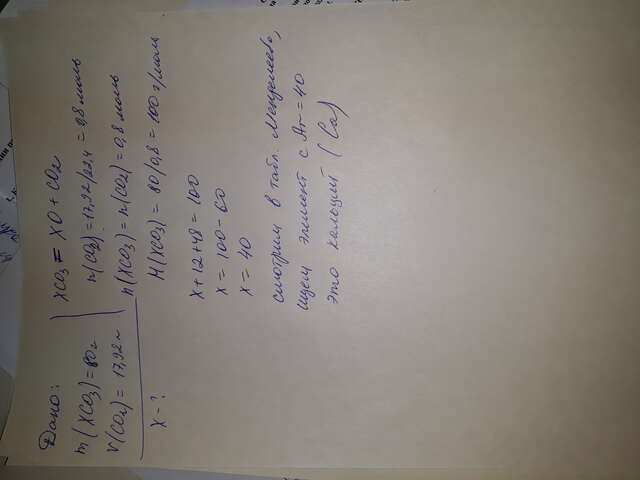 Дано:
m(XCO₃)=80г
V(CO₂)= 17,92л
X-?
XCO₃ = XO + CO₂
n(CO₂)=17,92/22,4 = 0,8 моль
n(XCO₃)=n(CO₂)=0,8 моль
M(XCO₃) = 80/0,8 = 100 г/моль
X+12+48=100
X=100-60
X=40
смотрим в табл. Менделеева,
ищем элемент с Ar=40
это кальций (Ca)